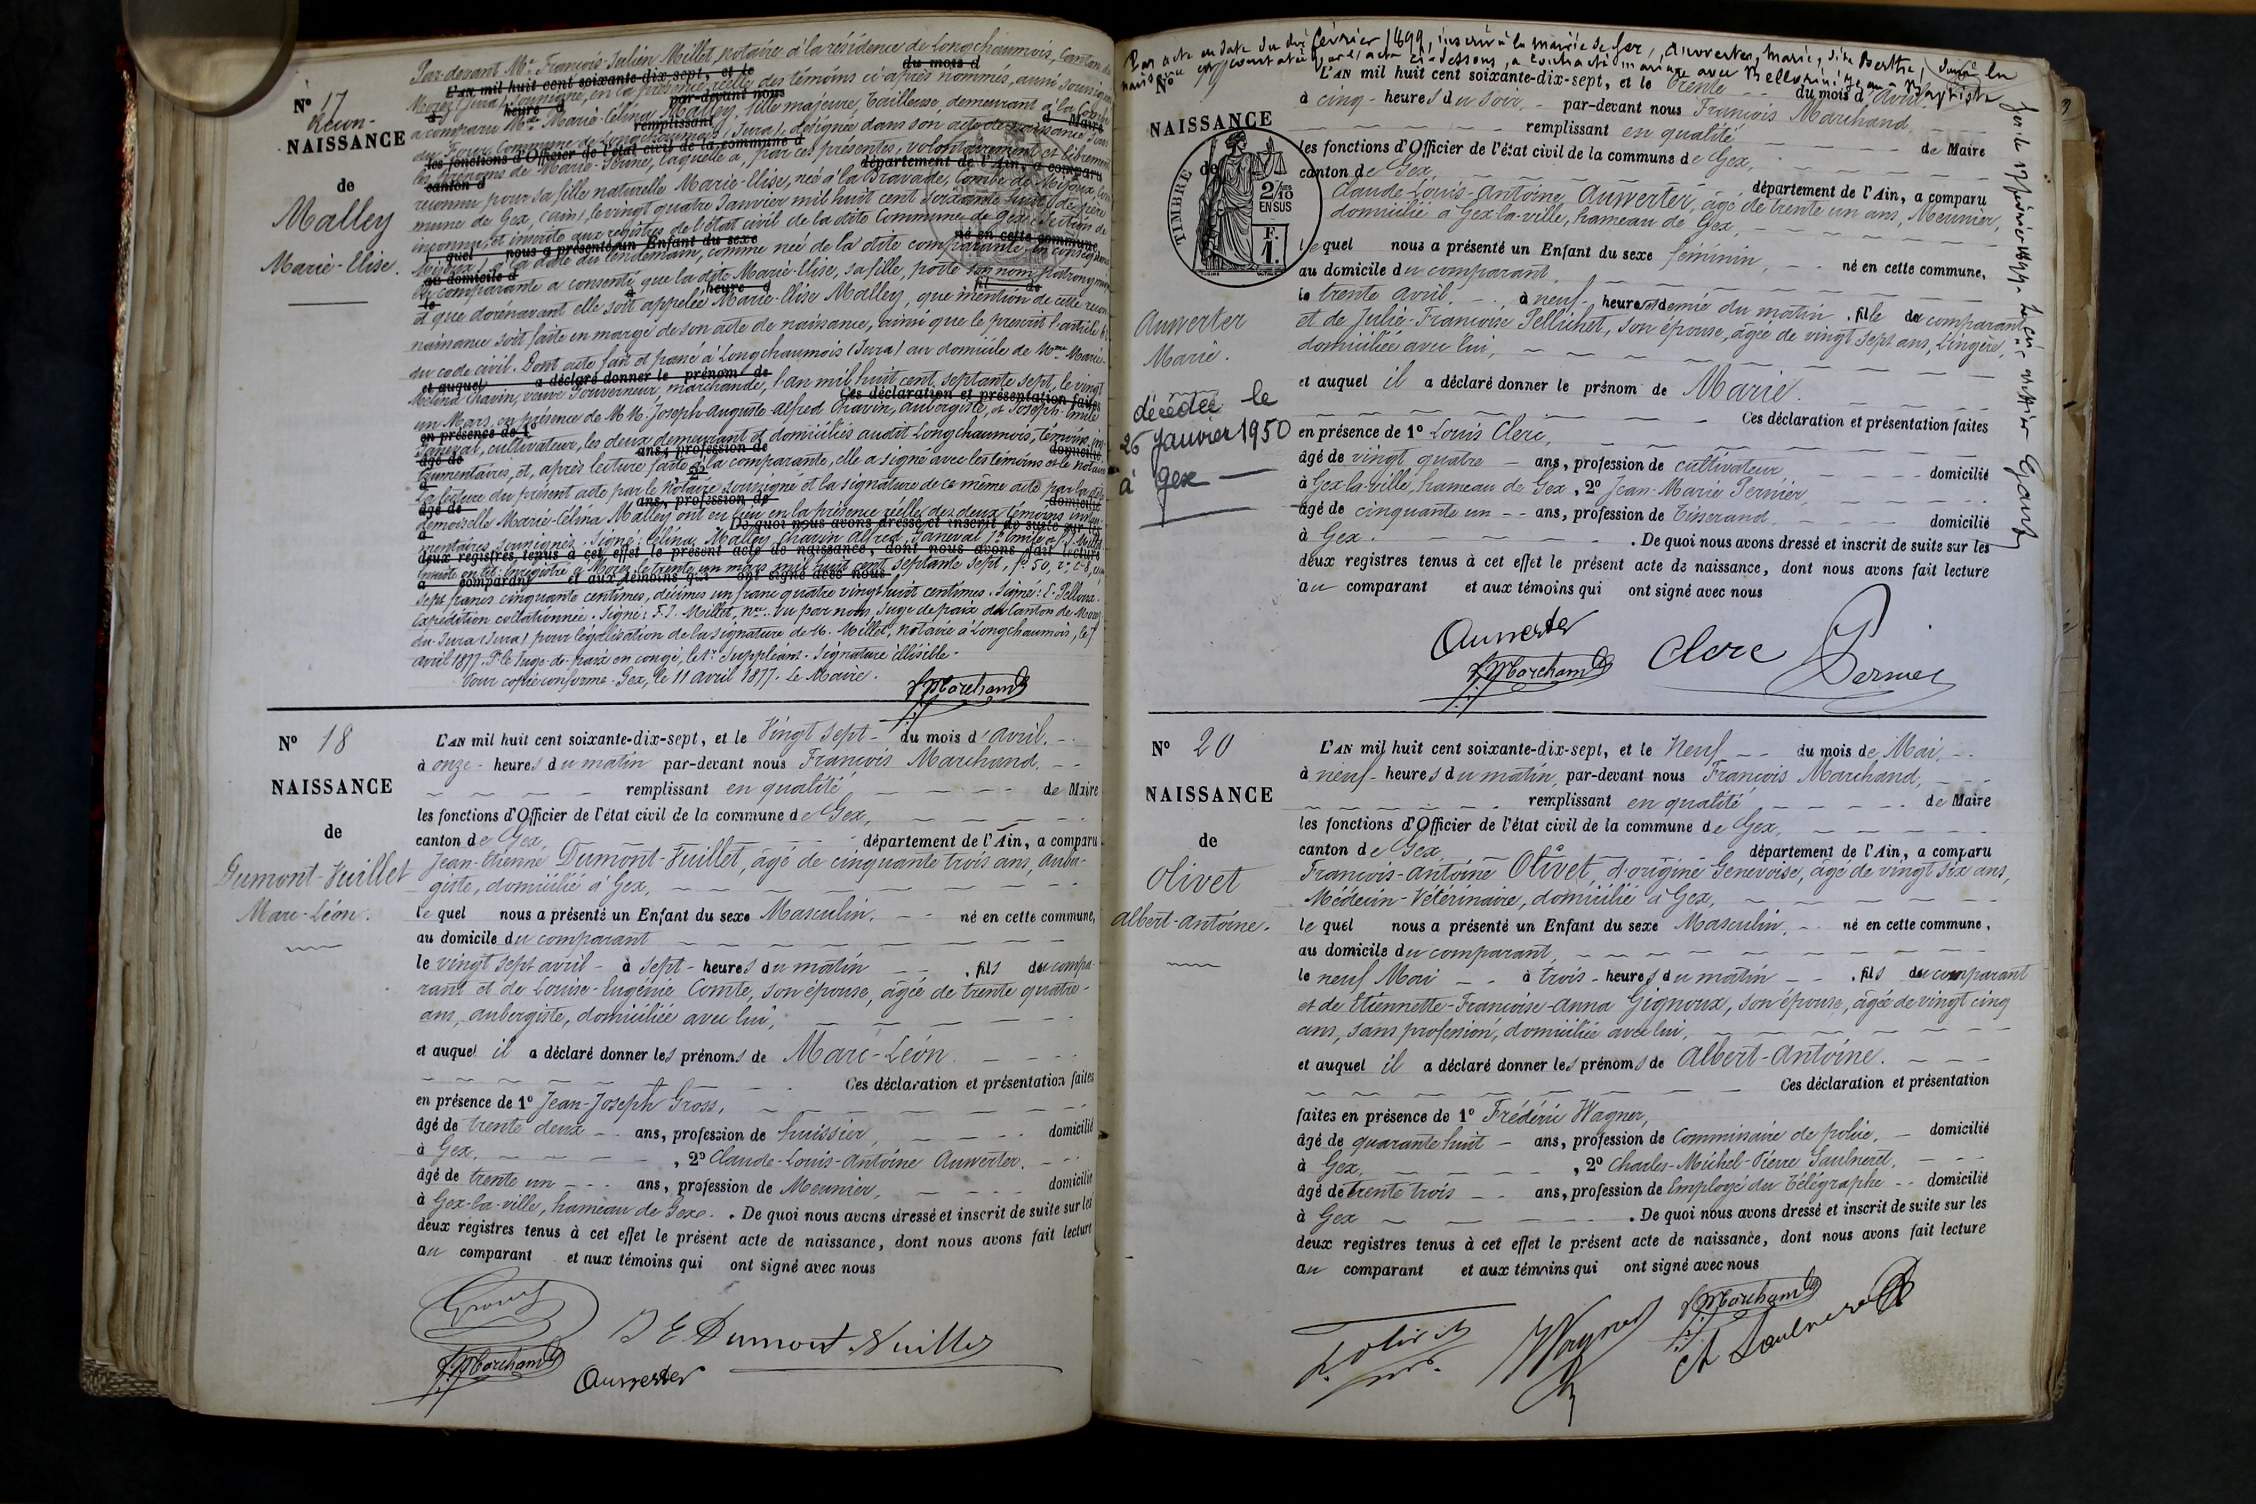 N° 17
Recon-
NAISSANCE
de
Malley
Marie-Elise.
Par-devant Me François-Julien Millet, notaire à la résidence de Longchaumois, Canton de
L'AN mil huit cent soixante-dix-sept, et le du mois d
Morez (Jura), soussigné, en la présence réelle des témoins ci-après nommés, aussi soussignés
à heure d par-devant nous
a comparu Mlle Marie-Célina Malley, fille majeure, tailleuse, demeurant à la Combe
remplissant d Maire
du Fourg, Commune de Longchaumois (Jura), désignée dans son acte de naissance sous
les fonctions d'Officier de l'état civil de la commune d
les prénoms de Marie-, laquelle a, par ces présentes, volontairement et librement
canton d département de l'Ain, a comparu
reconnu pour sa fille naturelle Marie-Elise, née à la Bravade, Combe de Mijoux, Com-
mune de Gex, (Ain), le vingt quatre Janvier mil huit cent soixante huit, de père
inconnu, et inscrite aux registres de l'état civil de la dite Commune de Gex (Section de
l quel nous a présenté un Enfant du sexe né en cette commune,
Mijoux), à la date du lendemain, comme née de la dite comparante, en conséquence
au domicile d
la comparante a consenti que la dite Marie-Elise, sa fille, porte son nom patronymique
le à heure d fil de
et que dorénavant elle soit appelée Marie-Elise Malley, que mention de cette recon-
naissance soit faite en marge de son acte de naissance, ainsi que le prescrit l'article 62
du code civil. Dont acte fait et passé à Longchaumois (Jura) au domicile de Mme Marie-
et auquel a déclaré donner le prénom de
Mélina Chavin, veuve Gouverneur, marchande, l'an mil huit cent septante sept, le vingt
Ces déclaration et présentation faites
un Mars, en présence de MM. Joseph-Auguste-Alfred Chavin, aubergiste, et Joseph-Emile
en présence de 1°
Janeval, cultivateur, les deux demeurant et domiciliés au dit Longchaumois, témoins ins-
âgé de ans, profession de domicilié
trumentaires, et, après lecture faite à la comparante, elle a signé avec les témoins et le notaire
à 2°
La lecture du présent acte par le Notaire soussigné et la signature de ce même acte par la dite
âgé de ans, profession de domicilié
demoiselle Marie-Célina Malley ont eu lieu en la présence réelle des deux témoins instru-
à De quoi nous avons dressé et inscrit de suite sur les
mentaires soussignés. Signé: Célina Malley, Chavin Alfred, Janeval Jh Emile et F.J. Millet
deux registres tenus à cet effet le présent acte de naissance, dont nous avons fait lecture
Enregistré à Morez, le trente un mars mil huit cent septante sept, fo 50, vo, c. 8,
a comparant et aux témoins qui ont signé avec nous
sept francs cinquante centimes, décimes un franc quatre vingt huit centimes. Signé:
Expédition collationnée. Signé: F.J. Millet, nre. Vu par nous, Juge de paix du Canton de Morez
du Jura (Jura) pour légalisation de la signature de M. Millet, notaire à Longchaumois, le 7
avril 1877. Pr le Juge de paix en congé, le 1er Suppléant. Signature illisible.
Pour copie conforme. Gex, le 11 avril 1877. Le Maire.
F. Marchand
N° 18
NAISSANCE
de
Dumont-Vuillet
Marc-Léon.
L'AN mil huit cent soixante-dix-sept, et le Vingt sept du mois d'avril.
à onze heures du matin par-devant nous François Marchand,
remplissant en qualité de Maire
les fonctions d'Officier de l'état civil de la commune de Gex,
canton de Gex, département de l'Ain, a comparu
Jean-Etienne Dumont-Vuillet, âgé de cinquante trois ans, auber-
giste, domicilié à Gex,
lequel nous a présenté un Enfant du sexe Masculin, né en cette commune,
au domicile du comparant
le vingt sept avril à sept heures du matin, fils du compa-
rant et de Louise-Eugénie Comte, son épouse, âgée de trente quatre
ans, aubergiste, domiciliée avec lui,
et auquel il a déclaré donner les prénoms de Marc-Léon.
Ces déclaration et présentation faites
en présence de 1° Jean-Joseph Gross,
âgé de trente deux ans, profession de huissier, domicilié
à Gex, 2° Claude-Louis-Antoine Auwerter,
âgé de trente un ans, profession de Meunier, domicilié
à Gex-la-ville, hameau de Gex. De quoi nous avons dressé et inscrit de suite sur les
deux registres tenus à cet effet le présent acte de naissance, dont nous avons fait lecture
au comparant et aux témoins qui ont signé avec nous
Gross
J E Dumont Vuillet
F. Marchand
Auwerter
Par acte en date du dix février 1899, inscrit à la mairie de Gex, Auwerter, Marie, dite Berthe, dont la
naissance est constatée par l'acte ci-dessous, a contracté mariage avec Baptiste
Gex le 17 février 1899. Le greffier
N° 19
NAISSANCE
de
TIMBRE
2/10 EN SUS
F. 1.
Auwerter
Marie.
décédée le
26 Janvier 1950
à Gex
L'AN mil huit cent soixante-dix-sept, et le trente du mois d'avril
à cinq heures du soir par-devant nous François Marchand
remplissant en qualité de Maire
les fonctions d'Officier de l'état civil de la commune de Gex,
canton de Gex, département de l'Ain, a comparu
Claude-Louis-Antoine Auwerter, âgé de trente un ans, Meunier,
domicilié à Gex-la-ville, hameau de Gex,
lequel nous a présenté un Enfant du sexe féminin, né en cette commune,
au domicile du comparant,
le trente avril, à neuf heures et demie du matin, fille du comparant
et de Julie-Françoise Pellichet, son épouse, âgée de vingt sept ans, Lingère,
domiciliée avec lui,
et auquel il a déclaré donner le prénom de Marie.
Ces déclaration et présentation faites
en présence de 1° Louis Clerc,
âgé de vingt quatre ans, profession de cultivateur domicilié
à Gex-la-ville, hameau de Gex, 2° Jean-Marie Pernier
âgé de cinquante un ans, profession de Tisserand domicilié
à Gex. De quoi nous avons dressé et inscrit de suite sur les
deux registres tenus à cet effet le présent acte de naissance, dont nous avons fait lecture
au comparant et aux témoins qui ont signé avec nous
Auwerter
F. Marchand
Clerc
Pernier
N° 20
NAISSANCE
de
Olivet
Albert-Antoine.
L'AN mil huit cent soixante-dix-sept, et le Neuf du mois de Mai.
à neuf heures du matin, par-devant nous François Marchand,
remplissant en qualité de Maire
les fonctions d'Officier de l'état civil de la commune de Gex,
canton de Gex département de l'Ain, a comparu
François-Antoine Olivet, d'origine Genevoise, âgé de vingt six ans,
Médecin-Vétérinaire, domicilié à Gex,
lequel nous a présenté un Enfant du sexe Masculin, né en cette commune,
au domicile du comparant,
le neuf Mai à trois heures du matin, fils du comparant
et de Etiennette-Françoise-Anna Gignoux, son épouse, âgée de vingt cinq
ans, sans profession, domiciliée avec lui,
et auquel il a déclaré donner les prénoms de Albert-Antoine.
Ces déclaration et présentation
faites en présence de 1° Frédéric Wagner,
âgé de quarante huit ans, profession de Commissaire de police, domicilié
à Gex, 2° Charles-Michel-Pierre Saulneret,
âgé de trente trois ans, profession de Employé du Télégraphe domicilié
à Gex. De quoi nous avons dressé et inscrit de suite sur les
deux registres tenus à cet effet le présent acte de naissance, dont nous avons fait lecture
au comparant et aux témoins qui ont signé avec nous
F. Marchand
Olivet
Wagner
Saulneret